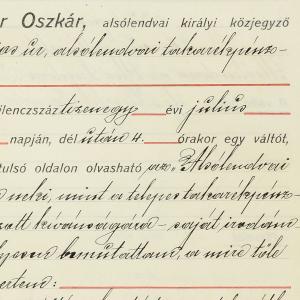 r Oszkár, alsólendvai királyi közjegyző
úr, alsólendvai takarékpénz-
ilencszáz tizenegy évi július
napján, dél után 4. órakor egy váltót,
tulsó oldalon olvasható az „Alsólendvai
neki, mint a telepes takarékpénz-
kívánságára – saját irodám
bemutattam, a mire tőle
ertem: